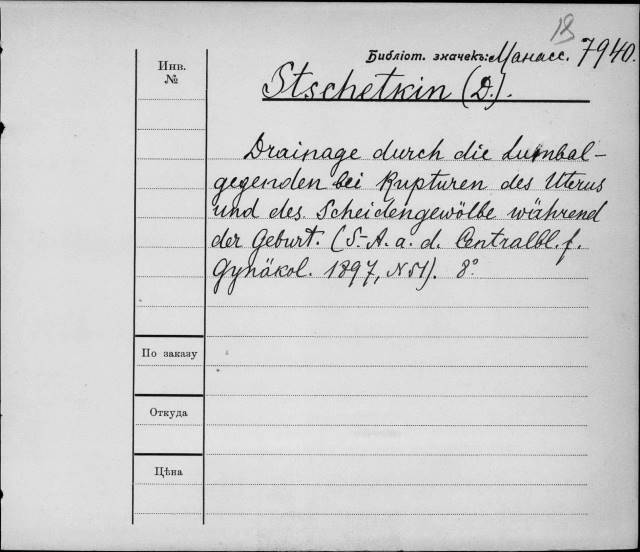 18
Библіот. значекъ: Манасс. 7940.
Инв.
№
Stschetkin (D.).
Drainage durch die Lumbal-
gegenden bei Rupturen des Uterus
und des Scheidengewölbe während
der Geburt. (S.-A. a. d. Centralbl. f.
Gynäkol. 1897, N 51). 8°
По заказу
Откуда
Цѣна